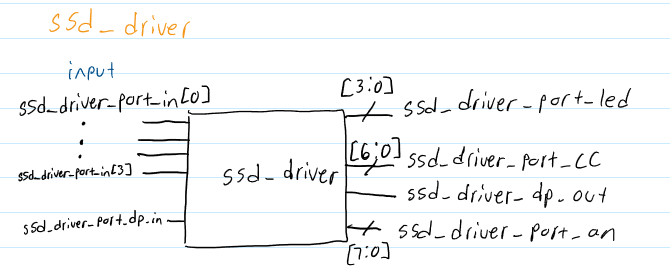 ssd_driver
input
ssd_driver_port_in[0]
ssd_driver_port_in[3]
ssd_driver_port_dp_in
ssd_driver
[3:0]
ssd_driver_port_led
[6;0]
ssd_driver_port_CC
ssd_driver_dp_out
ssd_driver_port_an
[7:0]